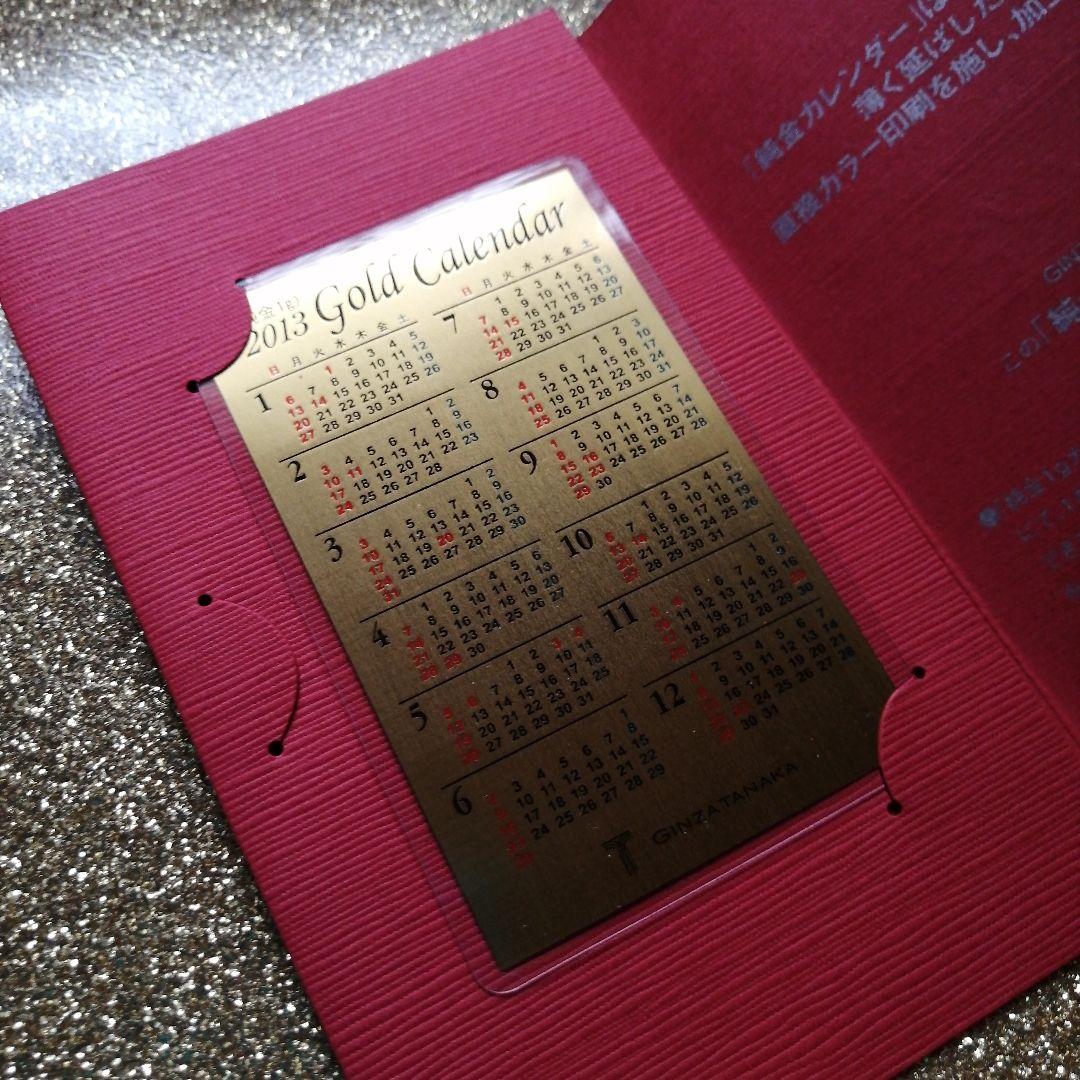 金1g)
2013 Gold Calendar
日 月 火 水 木 金 土
1
1 2 3 4 5
6 7 8 9 10 11 12
13 14 15 16 17 18 19
20 21 22 23 24 25 26
27 28 29 30 31
2
1 2
3 4 5 6 7 8 9
10 11 12 13 14 15 16
17 18 19 20 21 22 23
24 25 26 27 28
3
1 2
3 4 5 6 7 8 9
10 11 12 13 14 15 16
17 18 19 20 21 22 23
24 25 26 27 28 29 30
31
4
1 2 3 4 5 6
7 8 9 10 11 12 13
14 15 16 17 18 19 20
21 22 23 24 25 26 27
28 29 30
5
1 2 3 4
5 6 7 8 9 10 11
12 13 14 15 16 17 18
19 20 21 22 23 24 25
26 27 28 29 30 31
6
1
2 3 4 5 6 7 8
9 10 11 12 13 14 15
16 17 18 19 20 21 22
23 24 25 26 27 28 29
30
日 月 火 水 木 金 土
7
1 2 3 4 5 6
7 8 9 10 11 12 13
14 15 16 17 18 19 20
21 22 23 24 25 26 27
28 29 30 31
8
1 2 3
4 5 6 7 8 9 10
11 12 13 14 15 16 17
18 19 20 21 22 23 24
25 26 27 28 29 30 31
9
1 2 3 4 5 6 7
8 9 10 11 12 13 14
15 16 17 18 19 20 21
22 23 24 25 26 27 28
29 30
10
1 2 3 4 5
6 7 8 9 10 11 12
13 14 15 16 17 18 19
20 21 22 23 24 25 26
27 28 29 30 31
11
1 2
3 4 5 6 7 8 9
10 11 12 13 14 15 16
17 18 19 20 21 22 23
24 25 26 27 28 29 30
12
1 2 3 4 5 6 7
8 9 10 11 12 13 14
15 16 17 18 19 20 21
22 23 24 25 26 27 28
29 30 31
T GINZA TANAKA
「純金カレンダー」は
薄く延ばした
直接カラー印刷を施し、加工
GIN
この「純
●純金1gカ
にて、1
でき